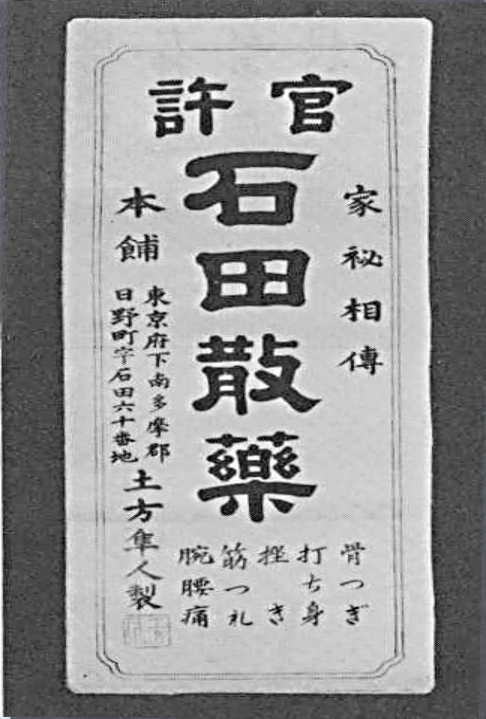 官許
家祕相傳
石田散藥
骨つぎ
打ち身
挫き
筋つれ
腕腰痛
本舗
東京府下南多摩郡
日野町字石田六十番地
土方隼人製